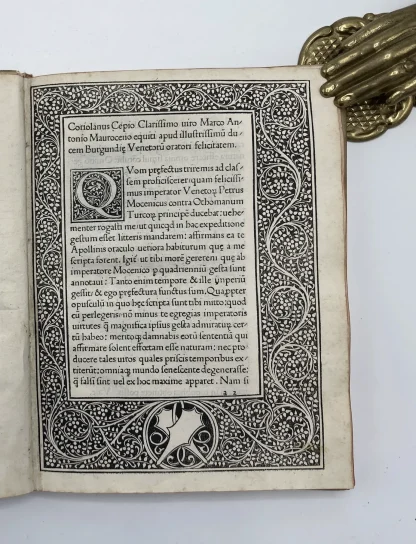 Coriolanus Cepio Clarissimo uiro Marco An-
tonio Mauroceno equiti apud illustrissimũ du-
cem Burgundię Venetorũ oratori felicitatem.
QVom pręfectus triremis ad clas-
sem proficiscerer: quam felicissi-
mus imperator Venetoꝝ Petrus
Mocenicus contra Othomanum
Turcoꝝ principẽ ducebat: uehe-
menter rogasti me: ut quicqd in hac expeditione
gestum esset litteris mandarem: affirmans ea te
Apollinis oraculo ueriora habiturum quę a me
scripta forent. Igit᷑ ut tibi morẽ gererem: quę ab
imperatore Mocenico ꝑ quadrienniũ gesta sunt
annotaui: Tanto enim tempore & ille ĩperiũ
gessit: & ego pręfectura functus sum. Quaꝓpter
opusculũ in quo hęc scripta sunt tibi mitto: quod
cũ perlegeris: nõ minus te egregias imperatoris
uirtutes ꝗ̃ magnifica ipsius gesta admiraturũ cer-
tũ habeo: meritoqꝫ damnabis eorũ sententiã qui
affirmare solent effœtam esse naturam: nec pro-
ducere tales uiros quales priscis temporibus ex-
titerũt: omniaqꝫ mundo senescente degenerasse:
ꝗ̃ falsi sint uel ex hoc maxime apparet. Nam si
a 2